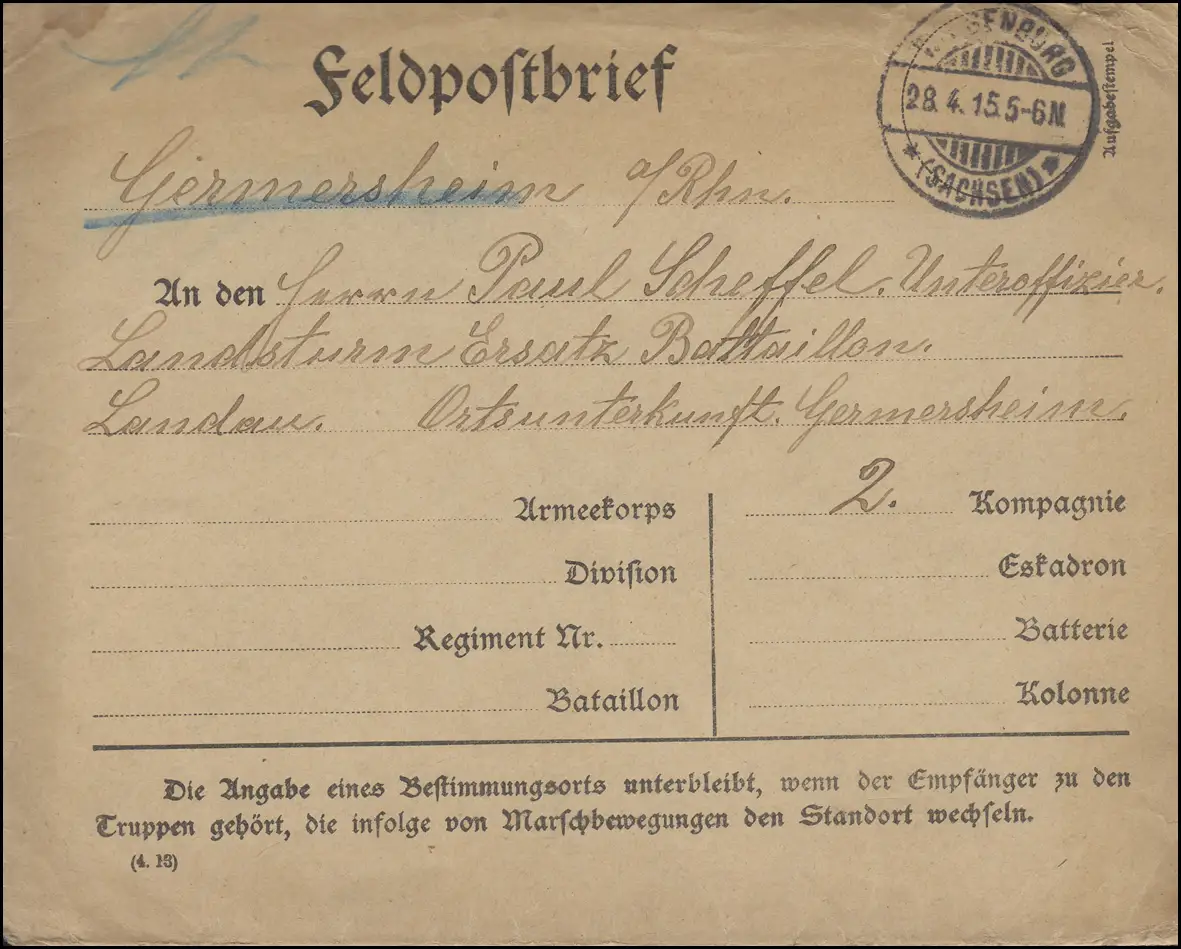 Feldpostbrief
28.4.15.5-6N.
* (SACHSEN) *
Aufgabestempel
Germersheim a/Rhn.
An den Herrn Paul Scheffel. Unteroffizier.
Landsturm Ersatz Battaillon.
Landau. Ortsunterkunft. Germersheim.
Armeekorps
2. Kompagnie
Division
Eskadron
Regiment Nr.
Batterie
Bataillon
Kolonne
Die Angabe eines Bestimmungsorts unterbleibt, wenn der Empfänger zu den
Truppen gehört, die infolge von Marschbewegungen den Standort wechseln.
(4. 13)